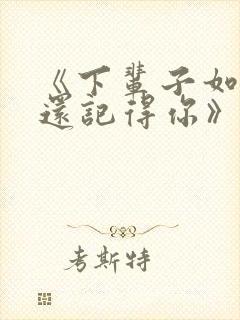 《下輩子如
還記得你》
考斯特